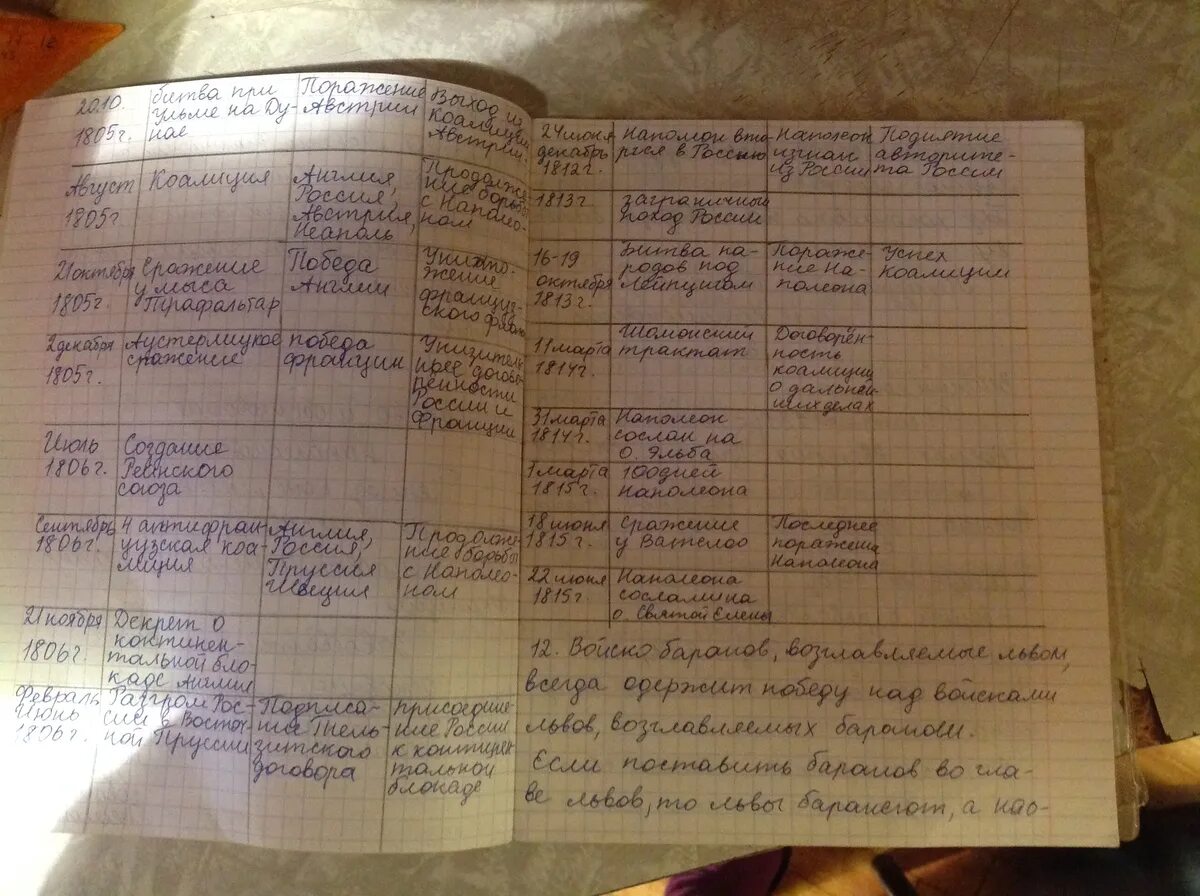 20.10.
1805г.
битва при
Ульме на Ду-
нае
Поражение
Австрии
Выход из
коалиции
Австрии.
Август
1805г
Коалиция
Англия,
Россия,
Австрия,
Неаполь
Продолже
ние борьбы
с Наполео-
ном
21 октября
1805г.
Сражение
у мыса
Трафальгар
Победа
Англии
Уничто-
жение
француз-
ского флота
2 декабря
1805г.
Аустерлицкое
сражение
победа
франции
Унизитель
ное догов-
ренности
России и
Франции
Июль
1806г.
Создание
Рейнского
союза
Сентябрь
1806г.
4 антифран-
цузская коа-
лиция
Англия,
Россия,
Пруссия
Швеция
Продолже-
ние борьбы
с Наполео-
ном
21 ноября
1806г.
Декрет о
континен-
тальной бло-
каде Англии
Февраль
Июнь
1806г.
Разгром Рос-
сии в Восточ-
ной Пруссии
Подписа-
ние Тиль-
зитского
договора
присоедине-
ние России
к континен
тальной
блокаде
24 июня
декабрь
1812г.
Наполеон вто
ргся в Россию
Наполеон
изгнан
из России
Поднятие
авторите-
та России
1813г
заграничный
поход России
16-19
октября
1813г.
Битва на-
родов под
Лейпцигом
Пораже-
ние На-
полеона
Успех
коалиции
11 марта
1814г.
Шомонский
трактат
Договорён-
ность
коалиции
о дальней
ших делах
31 марта
1814г.
Наполеон
сослан на
о. Эльба
1 марта
1815г.
100 дней
Наполеона
18 июня
1815г.
Сражение
у Ватлоо
Последнее
поражение
Наполеона
22 июня
1815г.
Наполеона
сослали на
о. Святой Елены
12. Войско баранов, возглавляемые львом,
всегда одержит победу над войсками
львов, возглавляемых баранови.
Если поставить баранов во гла-
ве львов, то львы баранеют, а нао-